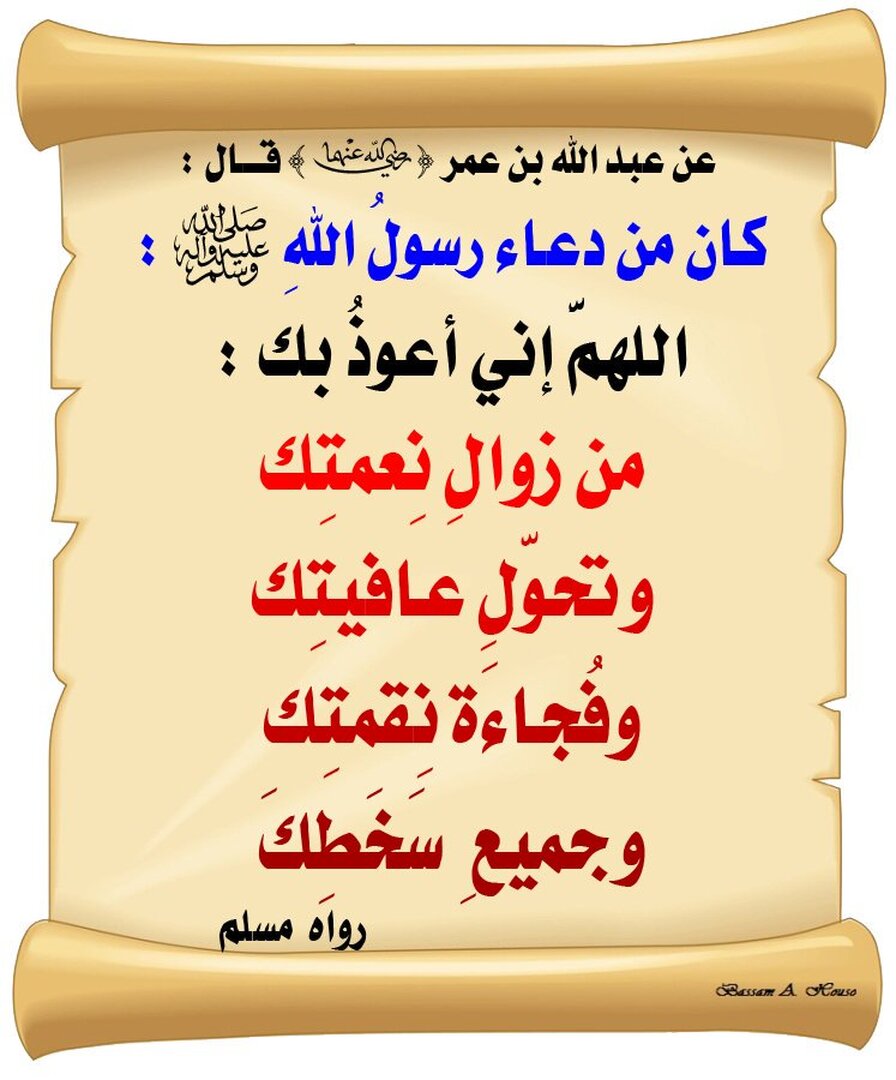 عن عبد الله بن عمر ﴿ رضي الله عنهما ﴾ قـــال :
كان من دعـاء رسولُ اللهِ صلى الله عليه وآله وسلم :
اللهمّ إني أعوذُ بك :
من زوالِ نِعمتِك
وتحوّلِ عـافيتِك
وفُجـاءة نِقمتِك
وجميعِ سَخَطِكَ
رواه مسلم
Bassam A. Houso